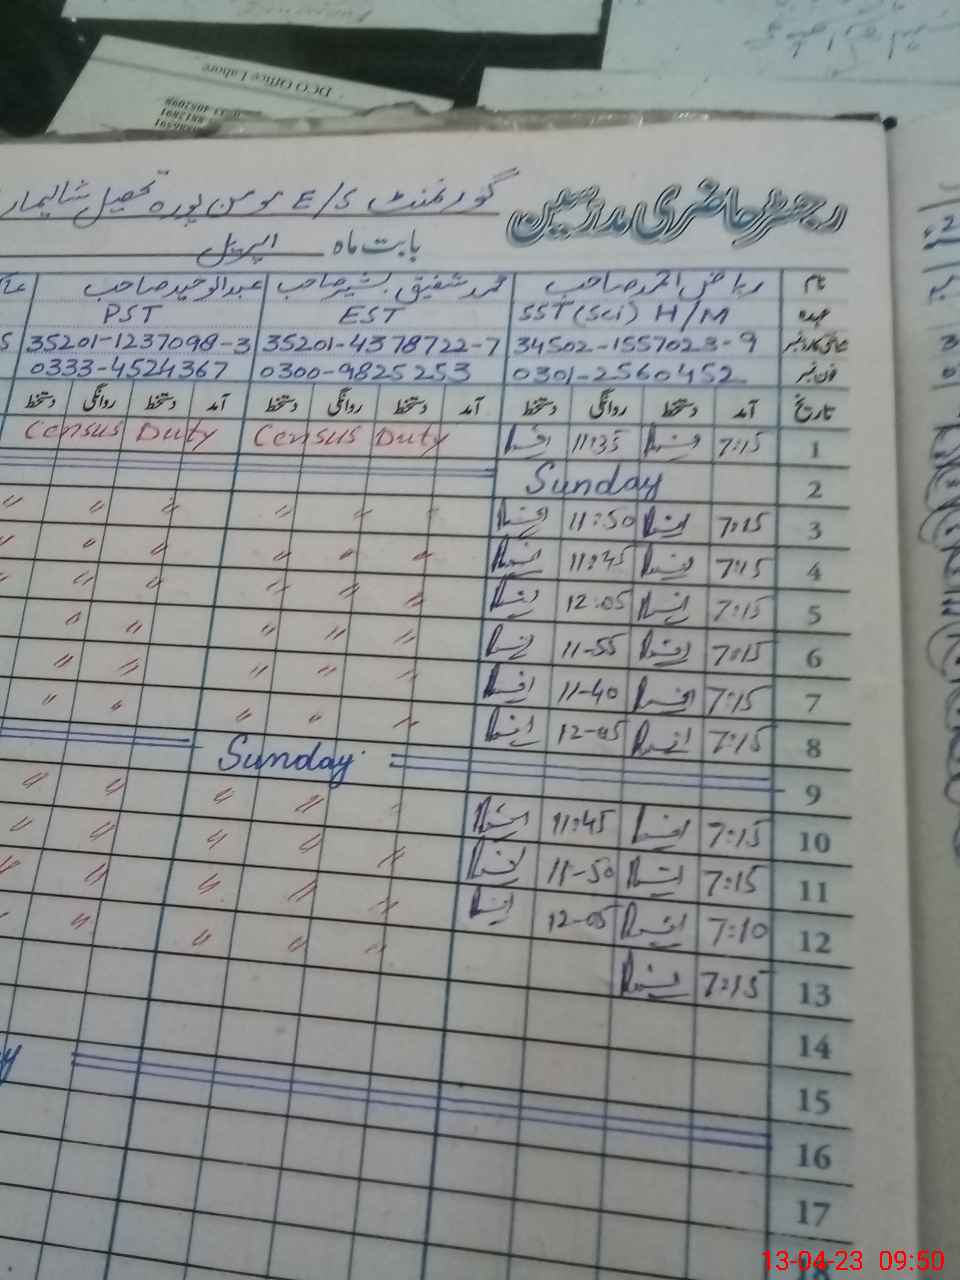 DCO Office Lahore
رجسٹر حاضری مدرسین گورنمنٹ E/S مومن پورہ تحصیل شالیمار
بابت ماہ اپریل
نام ریاض احمد صاحب محمد شفیق بشیر صاحب عبدالوحید صاحب
عہدہ SST(Sci) H/M EST PST
شناختی کارڈ نمبر 34502-1557023-9 35201-4378722-7 35201-1237098-3
فون نمبر 0301-2560452 0300-9825253 0333-4524367
تاریخ آمد دستخط روانگی دستخط آمد دستخط روانگی دستخط آمد دستخط روانگی دستخط
1 7:15 11:35 Census Duty Census Duty
2 Sunday
3 7:15 11:50 〃 〃 〃 〃 〃 〃
4 7:15 11:45 〃 〃 〃 〃 〃 〃
5 7:15 12:05 〃 〃 〃 〃 〃 〃
6 7:15 11-55 〃 〃 〃 〃 〃
7 7:15 11-40 〃 〃 〃 〃 〃
8 7:15 12-05 〃 〃 〃 〃 〃
9 Sunday
10 7:15 11:45 〃 〃 〃 〃
11 7:15 11-50 〃 〃 〃 〃 〃
12 7:10 12-05 〃 〃 〃 〃 〃
13 7:15 〃 〃 〃 〃
14
15
16
17
13-04-23 09:50